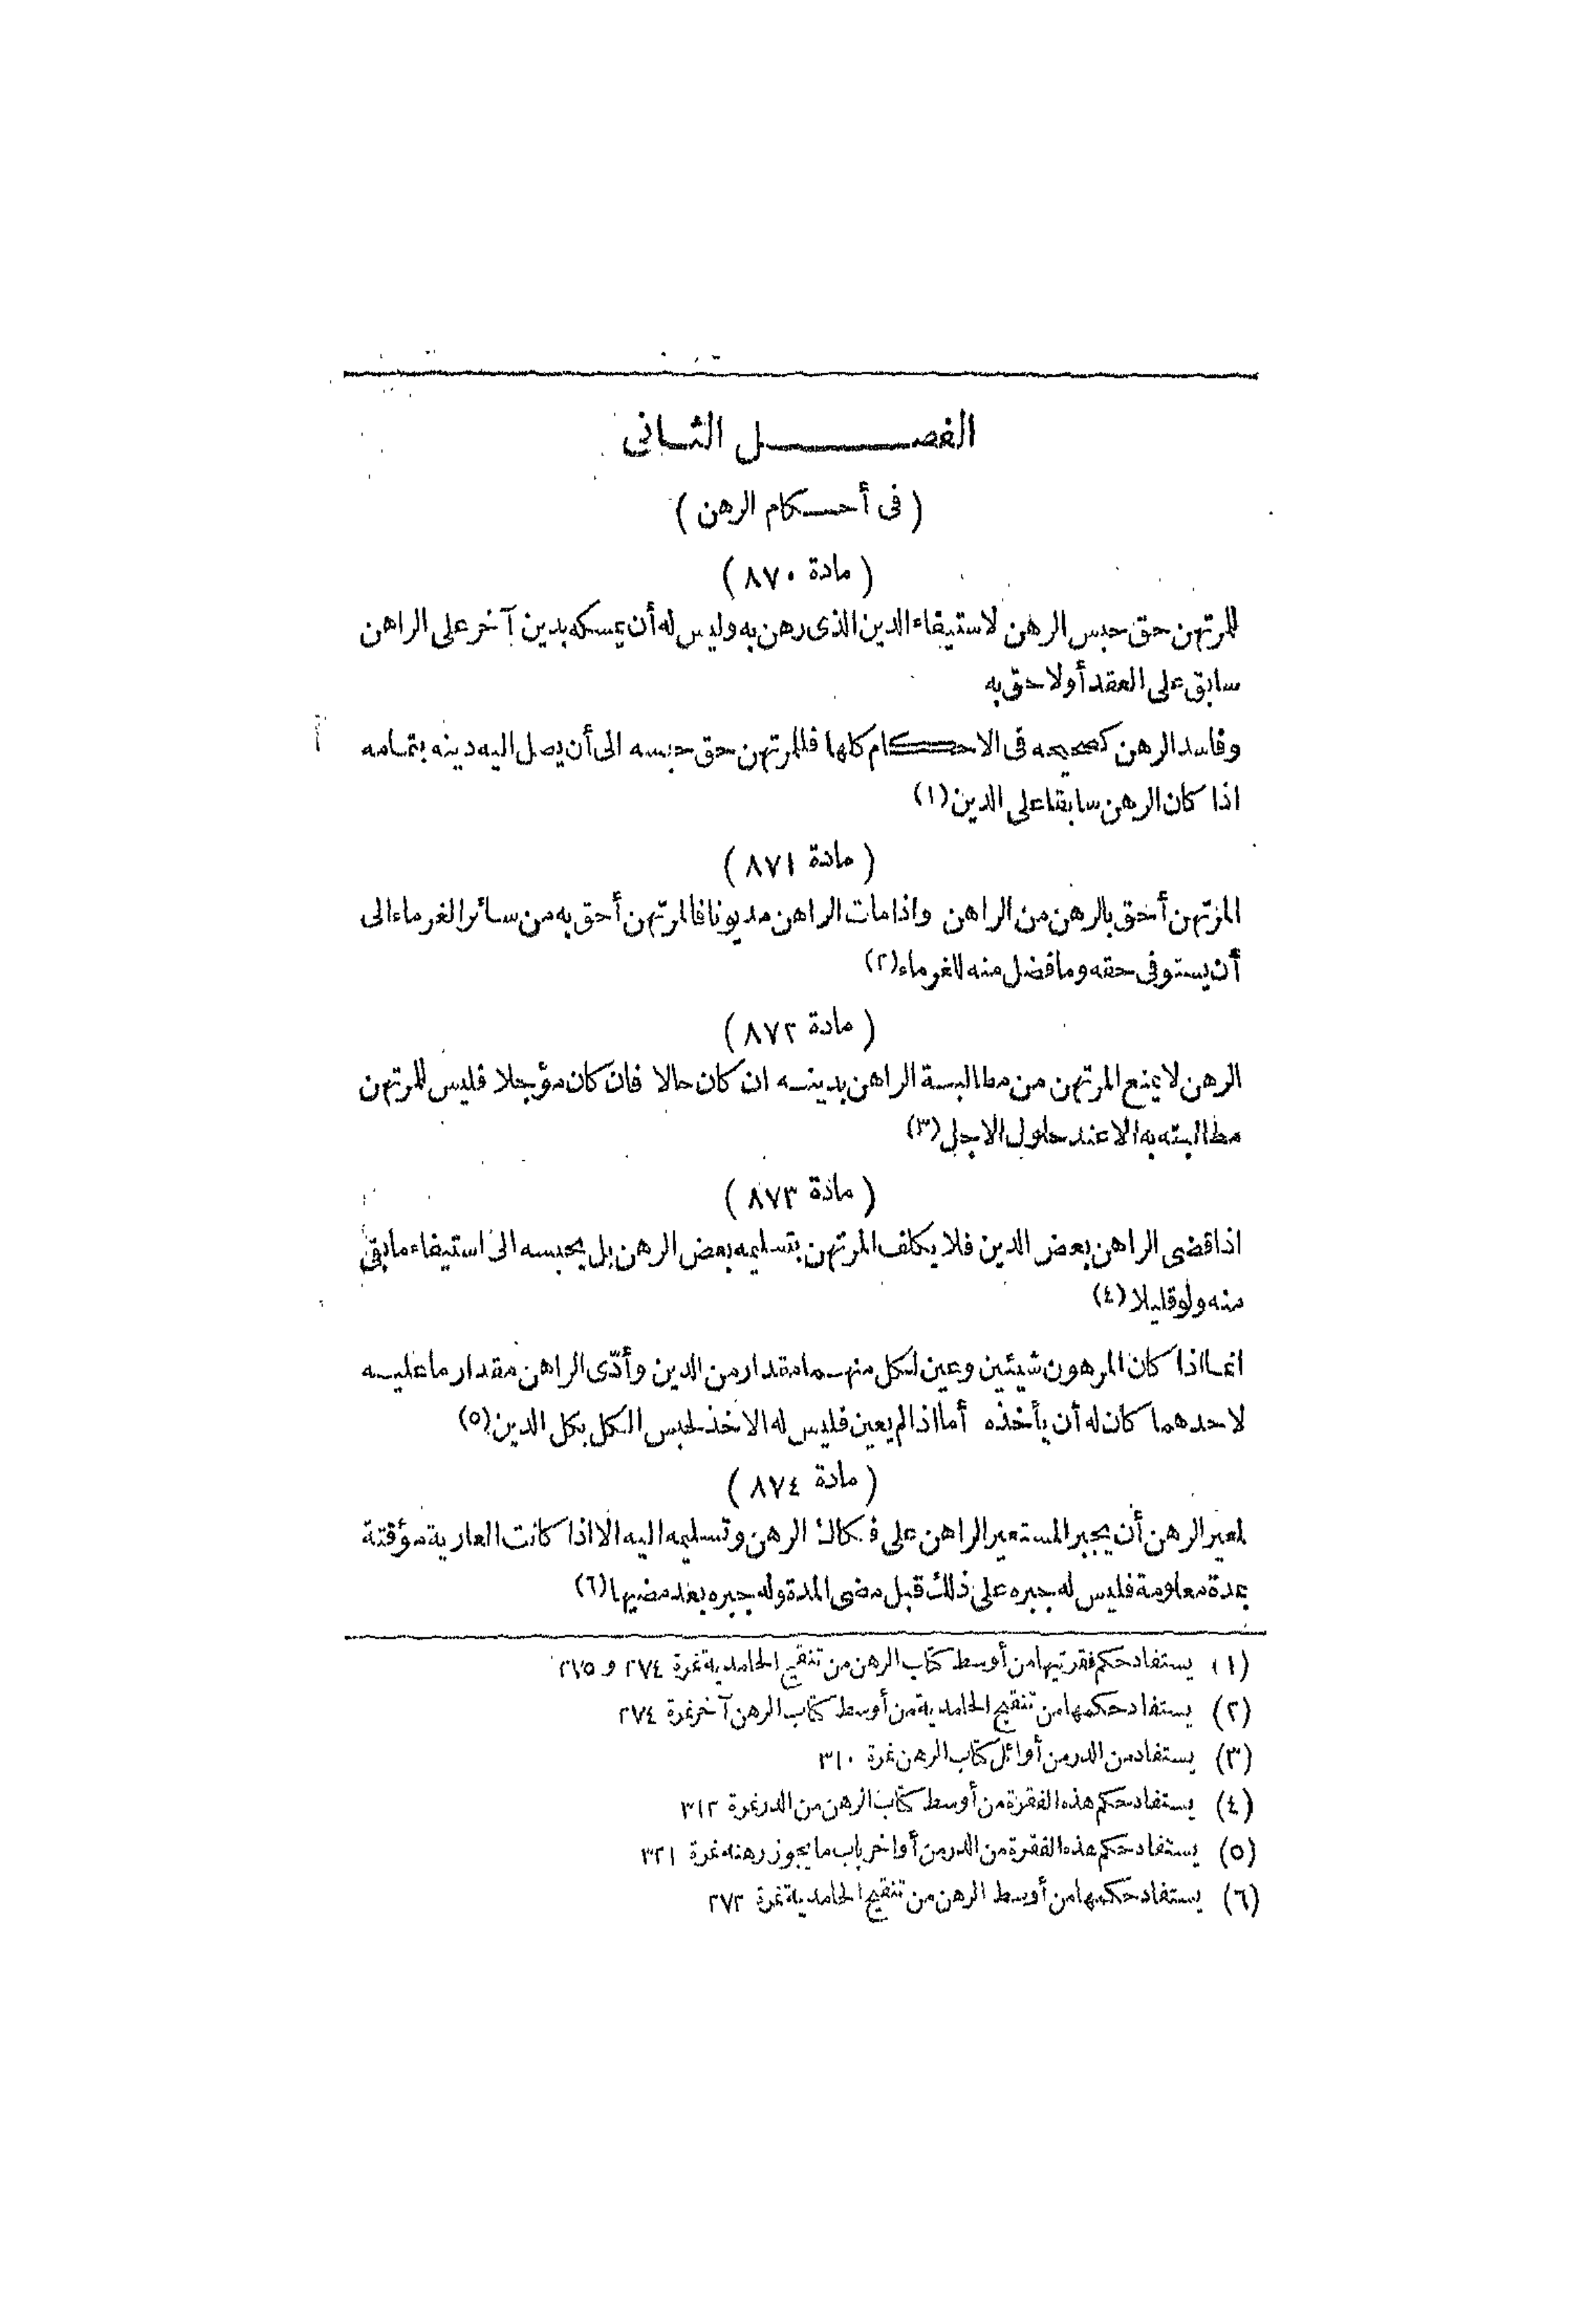 الفصل الثانى
( فى أحكام الرهن )
( مادة ٨٧٠ )
للمرتهن حق حبس الرهن لاستيفاء الدين الذى رهن به وليس له أن يمسكه بدين آخر على الراهن
سابق على العقد أو لاحق به
وفاسد الرهن كصحيحه فى الاحكام كلها فللمرتهن حق حبسه الى أن يصل اليه دينه بتمامه
اذا كان الرهن سابقا على الدين (١)
( مادة ٨٧١ )
المرتهن أحق بالرهن من الراهن واذا مات الراهن مديونا فالمرتهن أحق به من سائر الغرماء الى
أن يستوفى حقه وما فضل منه للغرماء (٢)
( مادة ٨٧٢ )
الرهن لا يمنع المرتهن من مطالبة الراهن بدينه ان كان حالا فان كان مؤجلا فليس للمرتهن
مطالبته به الا عند حلول الاجل (٣)
( مادة ٨٧٣ )
اذا قضى الراهن بعض الدين فلا يكلف المرتهن بتسليمه بعض الرهن بل يحبسه الى استيفاء ما بقى
منه ولو قليلا (٤)
انما اذا كان المرهون شيئين وعين لكل منهما مقدار من الدين وأدّى الراهن مقدار ما عليه
لاحدهما كان له أن يأخذه أما اذا لم يعين فليس له الاخذ لحبس الكل بكل الدين (٥)
( مادة ٨٧٤ )
لمعير الرهن أن يجبر المستعير الراهن على فكاك الرهن وتسليمه اليه الا اذا كانت العارية مؤقتة
بمدة معلومة فليس له جبره على ذلك قبل مضى المدة وله جبره بعد مضيها (٦)
(١) يستفاد حكم فقرتيها من أوسط كتاب الرهن من تنقيح الحامدية نمرة ٢٧٤ و ٢٧٥
(٢) يستفاد حكمها من تنقيح الحامدية من أوسط كتاب الرهن آخر نمرة ٢٧٤
(٣) يستفاد من الدر من أوائل كتاب الرهن نمرة ٣١٠
(٤) يستفاد حكم هذه الفقرة من أوسط كتاب الرهن من الدر نمرة ٣١٢
(٥) يستفاد حكم هذه الفقرة من الدر من أواخر باب ما يجوز رهنه نمرة ٣٢١
(٦) يستفاد حكمها من أوسط الرهن من تنقيح الحامدية نمرة ٢٧٢